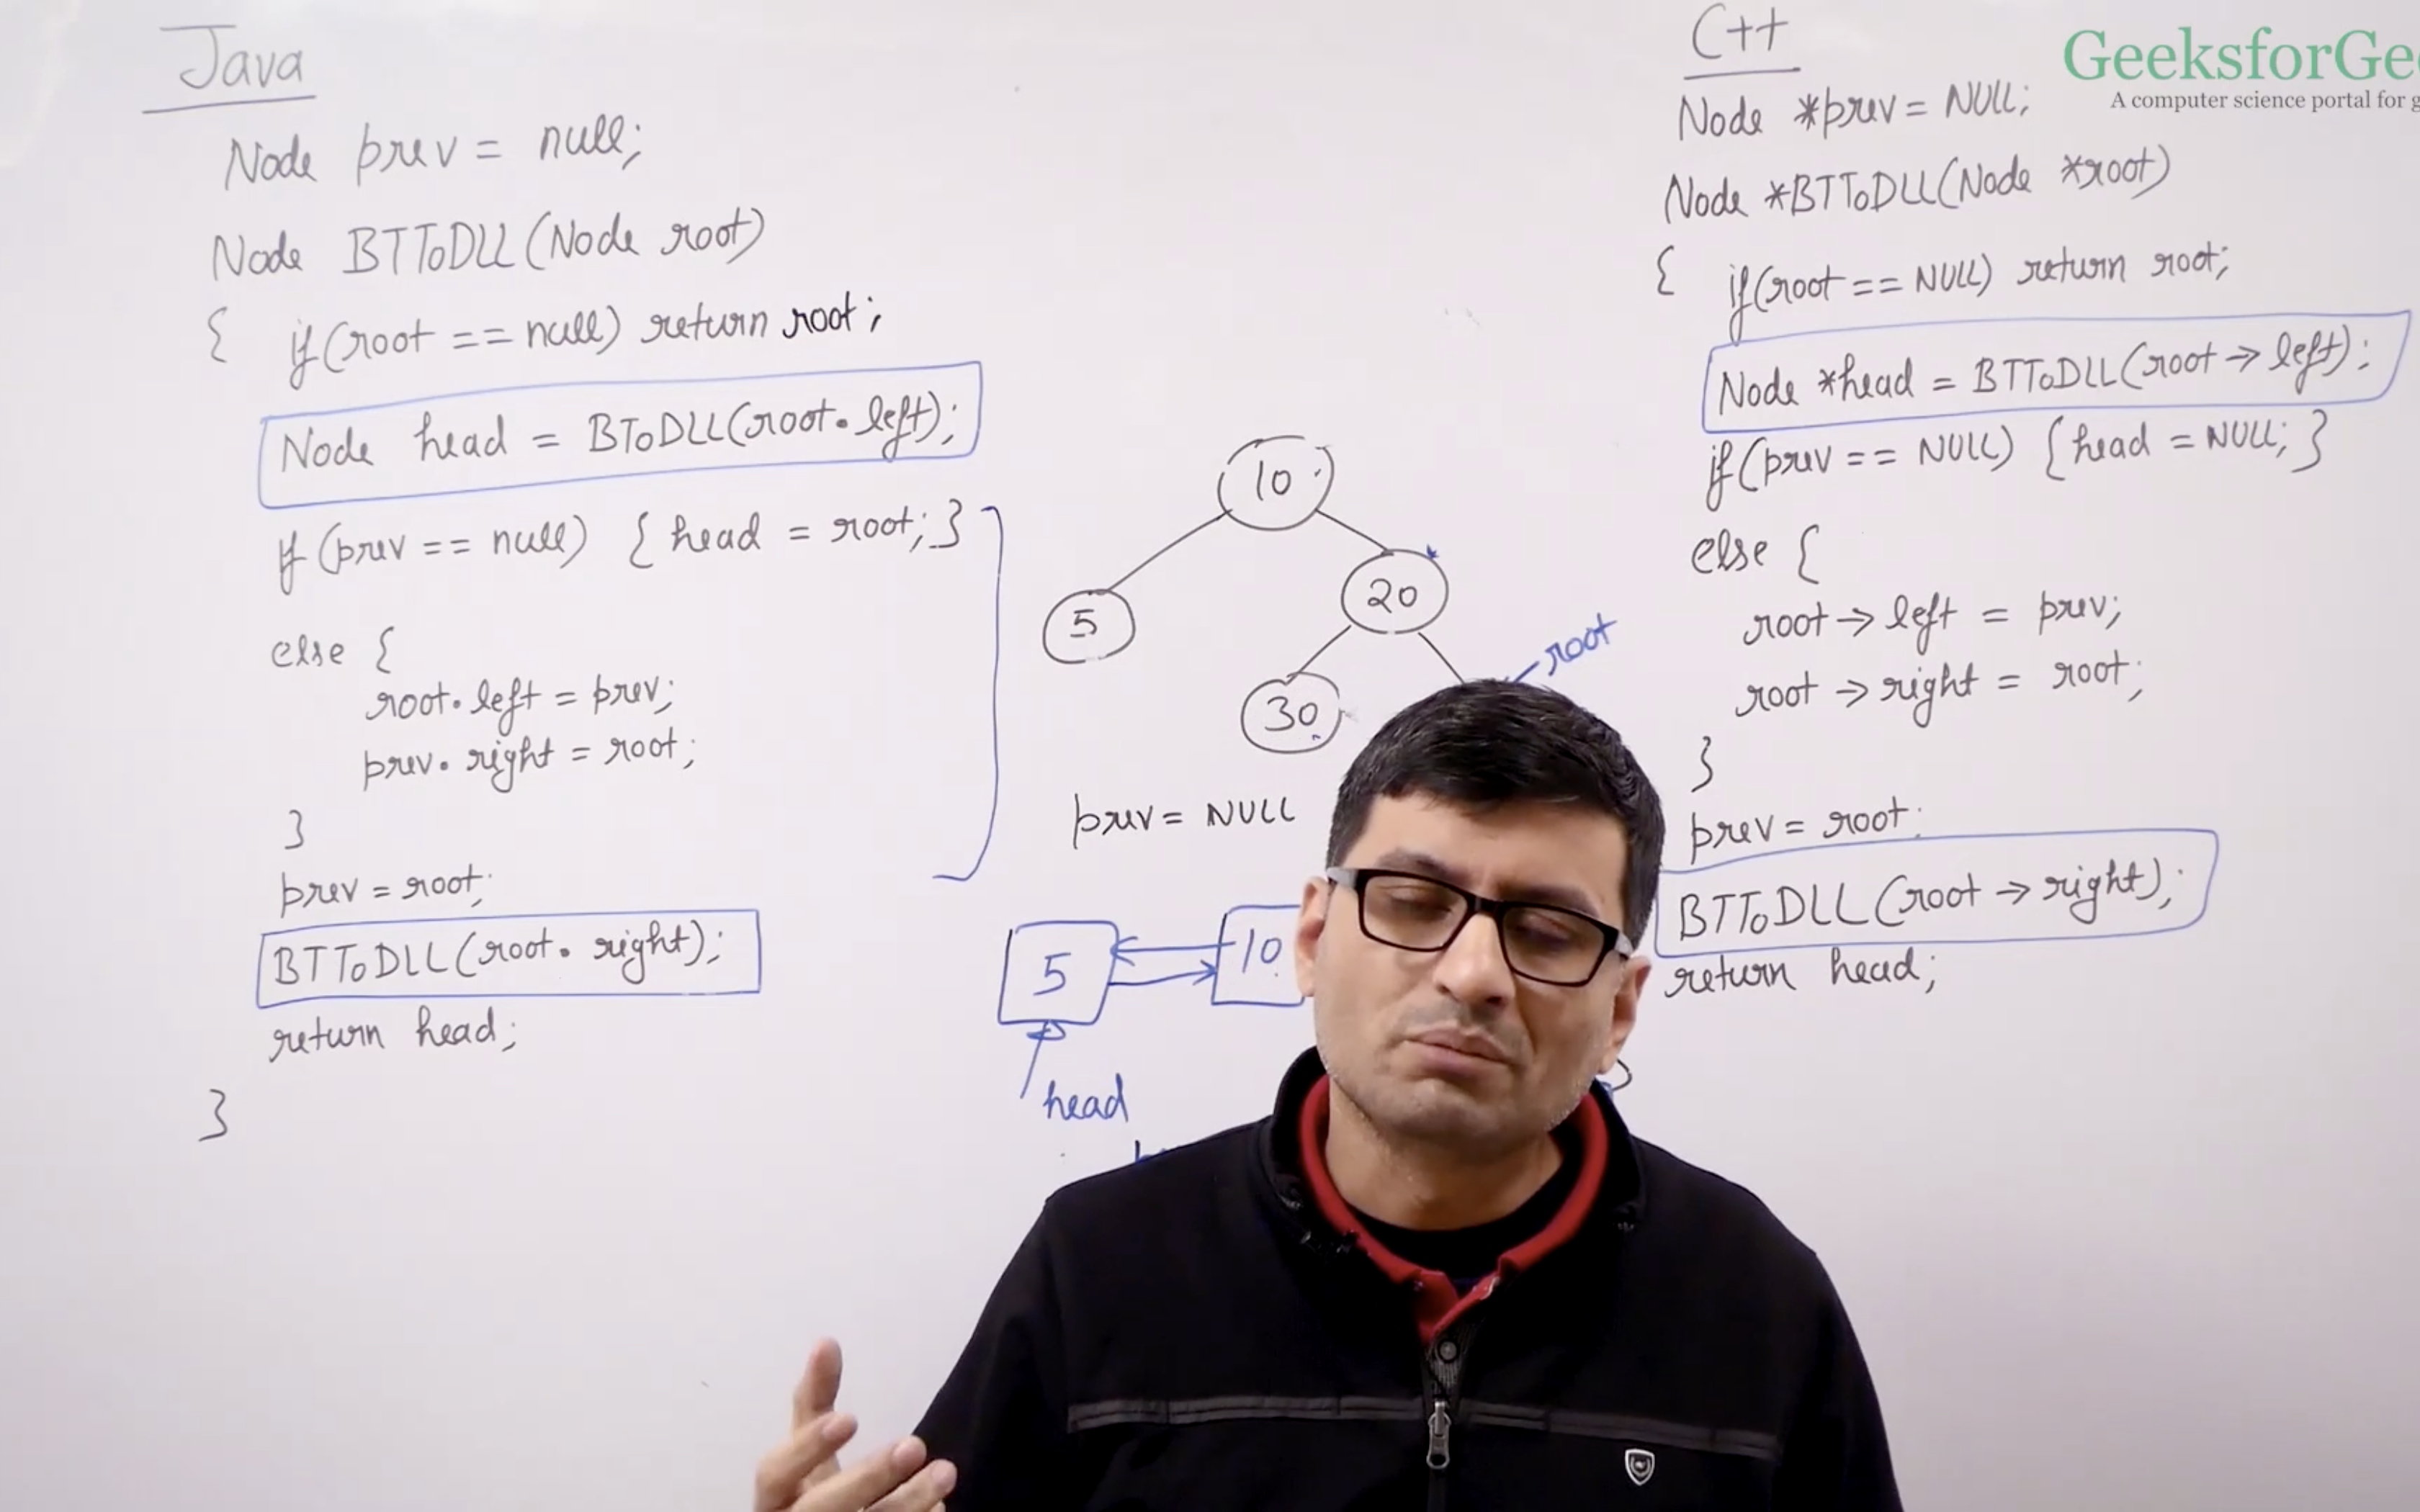 Java
Node prev = null;
Node BTToDLL(Node root)
{ if(root == null) return root;
Node head = BToDLL(root.left);
if(prev == null) {head = root;}
else {
root.left = prev;
prev.right = root;
}
prev = root;
BTToDLL(root.right);
return head;
}
10
5
20
30
root
prev = NULL
5
10
head
C++
Node *prev = NULL;
Node *BTToDLL(Node *root)
{ if(root == NULL) return root;
Node *head = BTToDLL(root→left);
if(prev == NULL) {head = NULL;}
else {
root→left = prev;
root→right = root;
}
prev = root;
BTToDLL(root→right);
return head;
GeeksforGe
A computer science portal for g